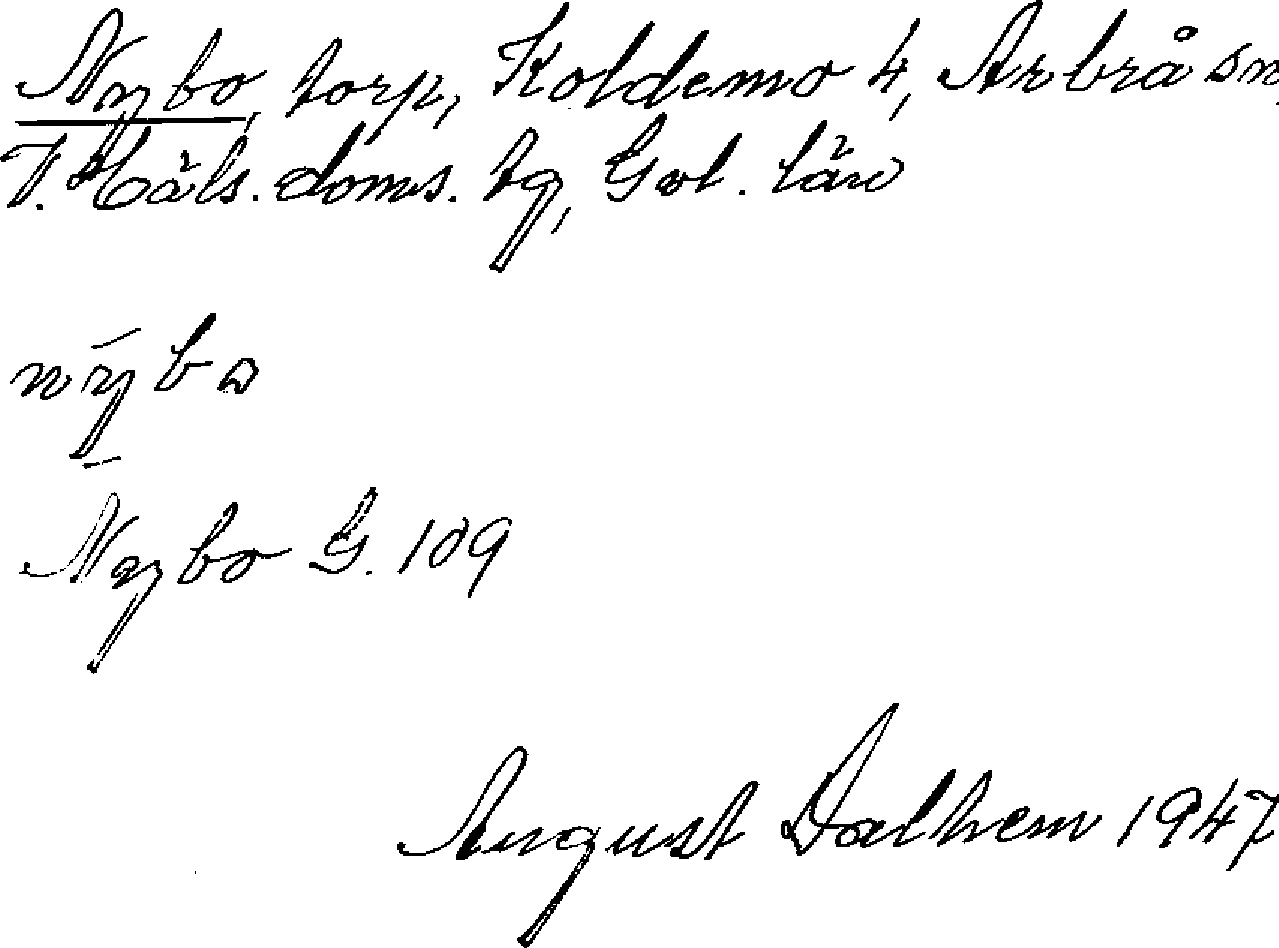 Nybo, torp, Koldemo 4, Arbrå sn,
V. Häls. doms. tg, Gvl. län
nȳbo
Nybo G. 109
August Dalhem 1947